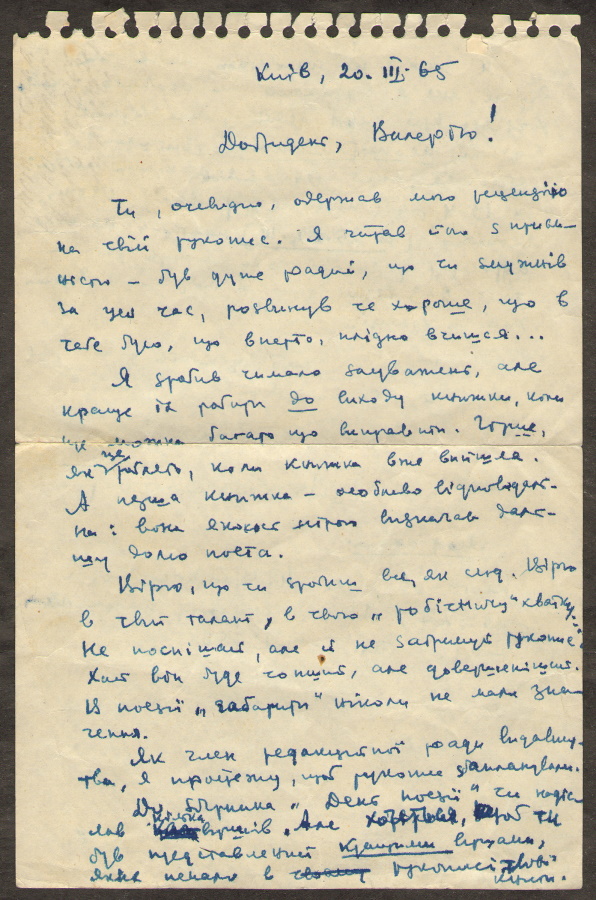 Київ, 20.III.65
Добридень, Валерію!
Ти, очевидно, одержав мою рецензію
на твій рукопис. Я читав його з приєм-
ністю – був дуже радий, що ти змужнів
за цей час, розвинув те хороше, що в
тебе було, що вперто, плідно вчишся...
Я зробив чимало зауважень, але
краще їх робити до виходу книжки, коли
ще можна багато що виправити. Гірше,
як це роблять, коли книжка вже вийшла.
А перша книжка – особливо відповідаль-
на: вона якоюсь мірою визначає даль-
шу долю поета.
Вірю, що ти зробиш все, як слід. Вірю
в твій талант, в твою „робітничу" хватку.
Не поспішай, але й не затримуй рукопис.
Хай він буде тонший, але довершеніший.
В поезії „габарити" ніколи не мали зна-
чення.
Як член редакційної ради видавниц-
тва, я простежу, щоб рукопис запланували.
До збірника „День поезії" ти надіс-
лав кілька віршів. Але хотілося, щоб ти
був представлений кращими віршами,
яких немало в рукописі твоєї
книги.